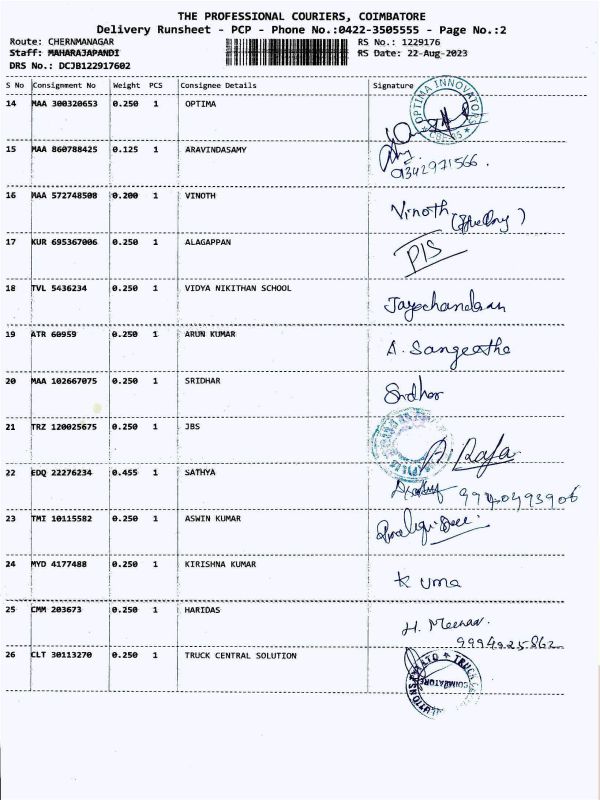 THE PROFESSIONAL COURIERS, COIMBATORE
Delivery Runsheet - PCP - Phone No.:0422-3505555 - Page No.:2
Route: CHERNMANAGAR RS No.: 1229176
Staff: MAHARAJAPANDI RS Date: 22-Aug-2023
DRS No.: DCJB122917602
S No Consignment No Weight PCS Consignee Details Signature
14 MAA 300320653 0.250 1 OPTIMA
OPTIMA INNOVATORS
15 MAA 860788425 0.125 1 ARAVINDASAMY
9342971566.
16 MAA 572748508 0.200 1 VINOTH Vinoth
17 KUR 695367006 0.250 1 ALAGAPPAN PIS
18 TVL 5436234 0.250 1 VIDYA NIKITHAN SCHOOL Jayachandran
19 ATR 60959 0.250 1 ARUN KUMAR A. Sangeetha
20 MAA 102667075 0.250 1 SRIDHAR Sridhar
21 TRZ 120025675 0.250 1 JBS A. Raja
22 EDQ 22276234 0.455 1 SATHYA 9940493906
23 TMI 10115582 0.250 1 ASWIN KUMAR
24 MYD 4177488 0.250 1 KIRISHNA KUMAR K uma
25 CMM 203673 0.250 1 HARIDAS H. Meena
9994925862
26 CLT 30113270 0.250 1 TRUCK CENTRAL SOLUTION
COIMBATORE